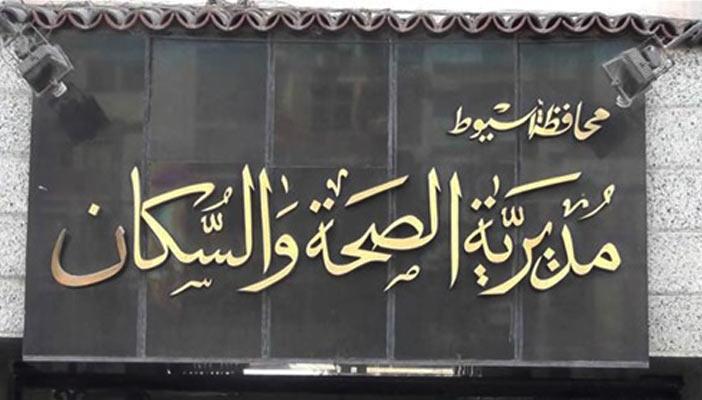 محافظة اسيوط
مديريَّة الصحة وَالسُّكان